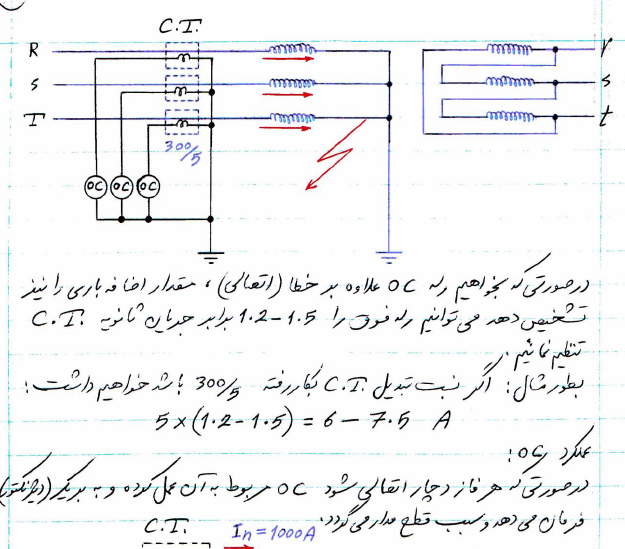 C.T.
R
r
S
s
T
t
300/5
OC OC OC
درصورتی که بخواهیم رله OC علاوه بر خطا (اتصالی)، مقدار اضافه باری را نیز
تشخیص دهد می توانیم رله فوق را 1.2-1.5 برابر جریان ثانویه C.T.
تنظیم نمائیم.
بطور مثال: اگر نسبت تبدیل C.T. بکار رفته 300/5 باشد خواهیم داشت:
5×(1.2-1.5) = 6 - 7.5 A
عملکرد OC:
درصورتی که هر فاز دچار اتصالی شود OC مربوط به آن عمل کرده و به بریکر (دیژنکتور)
فرمان می دهد و سبب قطع مدار می گردد.
C.T. In=1000A